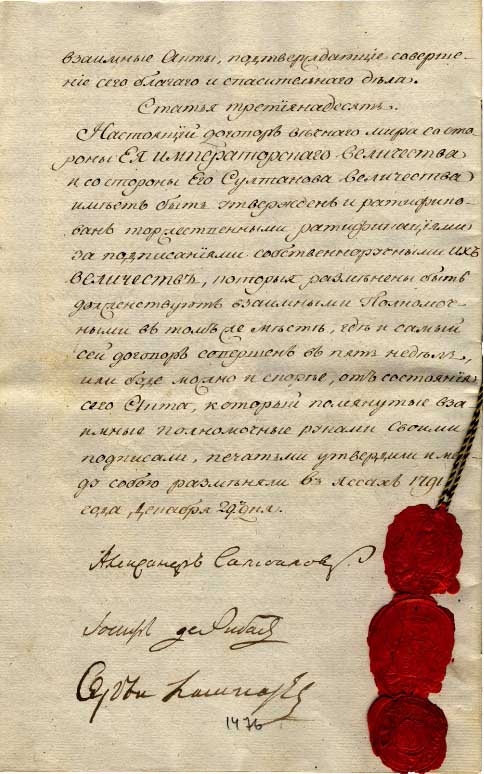 взаимные Акты, подтверждающіе соверше-
ніе сего благаго и спасительнаго дѣла.
Статья третіянадесять.
Настоящій договоръ вѣчнаго мира со сто-
роны ЕЯ императорскаго величества
и со стороны Его Султанова величества
имѣетъ быть утвержденъ и ратифико-
ванъ торжественными ратификаціями
за подписаніями собственноручными ИХЪ
величествъ, которыя размѣнены быть
долженствуютъ взаимными Полномоч-
ными въ томъ же мѣстѣ, гдѣ и самый
сей договоръ совершенъ въ пять недѣль,
или буде можно и скорѣе, отъ состоянія
сего Акта, который помянутые вза-
имные полномочные руками своими
подписали, печатьми утвердили и меж-
ду собою размѣняли въ Яссахъ 1791
года, Декабря 29 дня.
Александръ Самойловъ
Іосифъ де Рибасъ
Сергѣй Лашкаревъ
1476